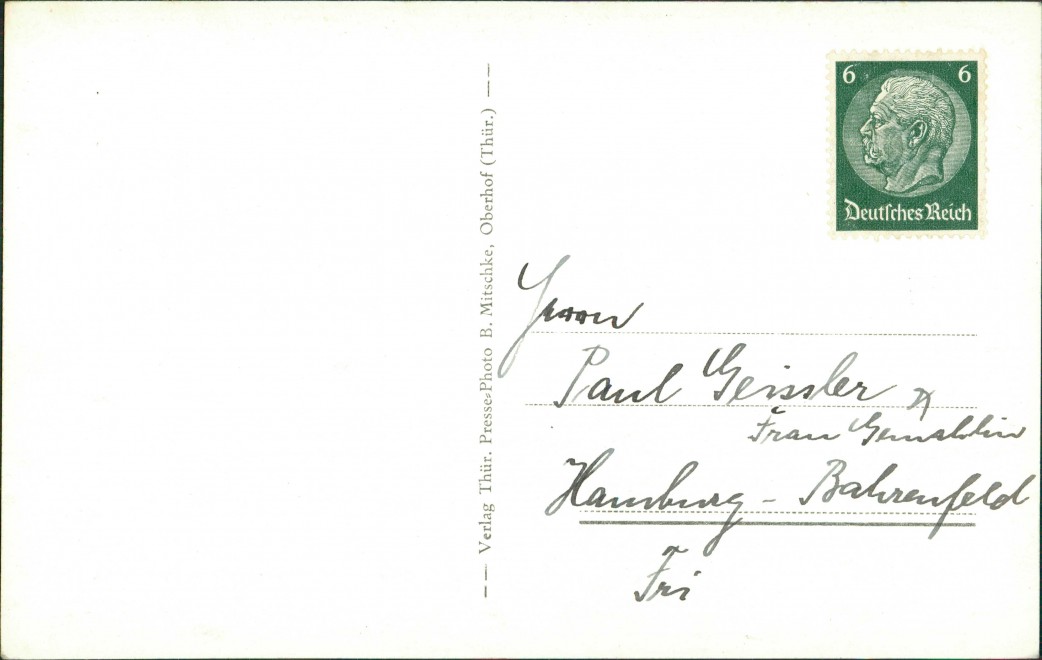 — — Verlag Thür. Presse-Photo B. Mitschke, Oberhof (Thür.) — —
6 6
Deutsches Reich
Herrn
Paul Geissler
Frau Gemahlin
Hamburg - Bahrenfeld
Fri